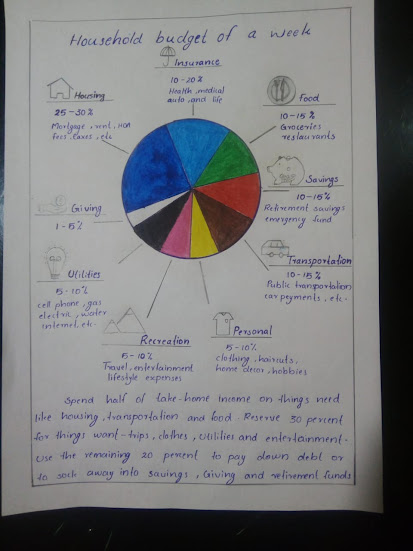 Household budget of a week
Insurance
10-20%
Health, medical
auto, and life
Housing
25-30%
Mortgage, rent, HOA
fees, taxes, etc
Food
10-15%
Groceries,
restaurants
Savings
10-15%
Retirement savings
emergency fund
Giving
1-5%
Transportation
10-15%
Public transportation
car peyments, etc.
Utilities
5-10%
cell phone, gas
electric, water
internet, etc.
Recreation
5-10%
Travel, entertainment
lifestyle expenses
Personal
5-10%
clothing, haircuts,
home decor, hobbies
Spend half of take-home income on things need
like housing, transportation and food. Reserve 30 percent
for things want-trips, clothes, utilities and entertainment.
use the remaining 20 percent to pay down debt or
to sock away into savings, Giving and retirement funds